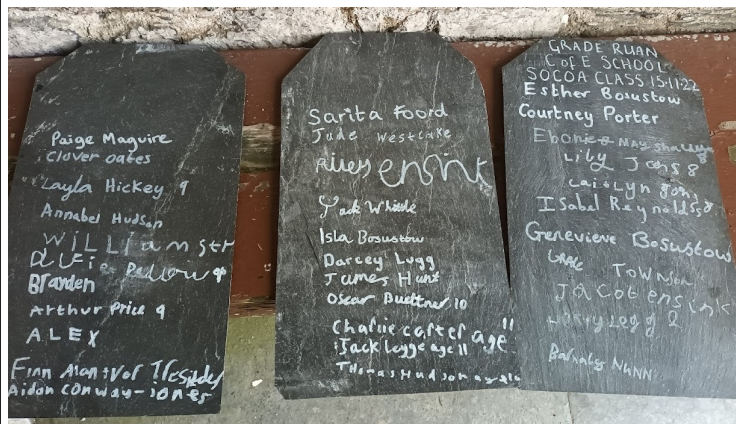 Paige Maguire
Clover oates
Layla Hickey 9
Annabel Hudson
William
Branden
Arthur Price 9
ALEX
Finn Alan
Aidan conway-jones
Sarita Foord
Jude Westlake
ensink
Jack Whittle
Isla Bosustow
Darcey Lugg
James Hunt
Oscar Buettner 10
Charlie carter age 11
Jack Legge age 11
Thomas Hudson age
GRADE RUAN
C of E SCHOOL
SOCOA CLASS 15-11-22
Esther Bosustow
Courtney Porter
Ebonie May
Lily 8
Caitlyn
Isabel Reynolds 8
Genevieve Bosustow
Jacob ensink
Barnaby NUNN